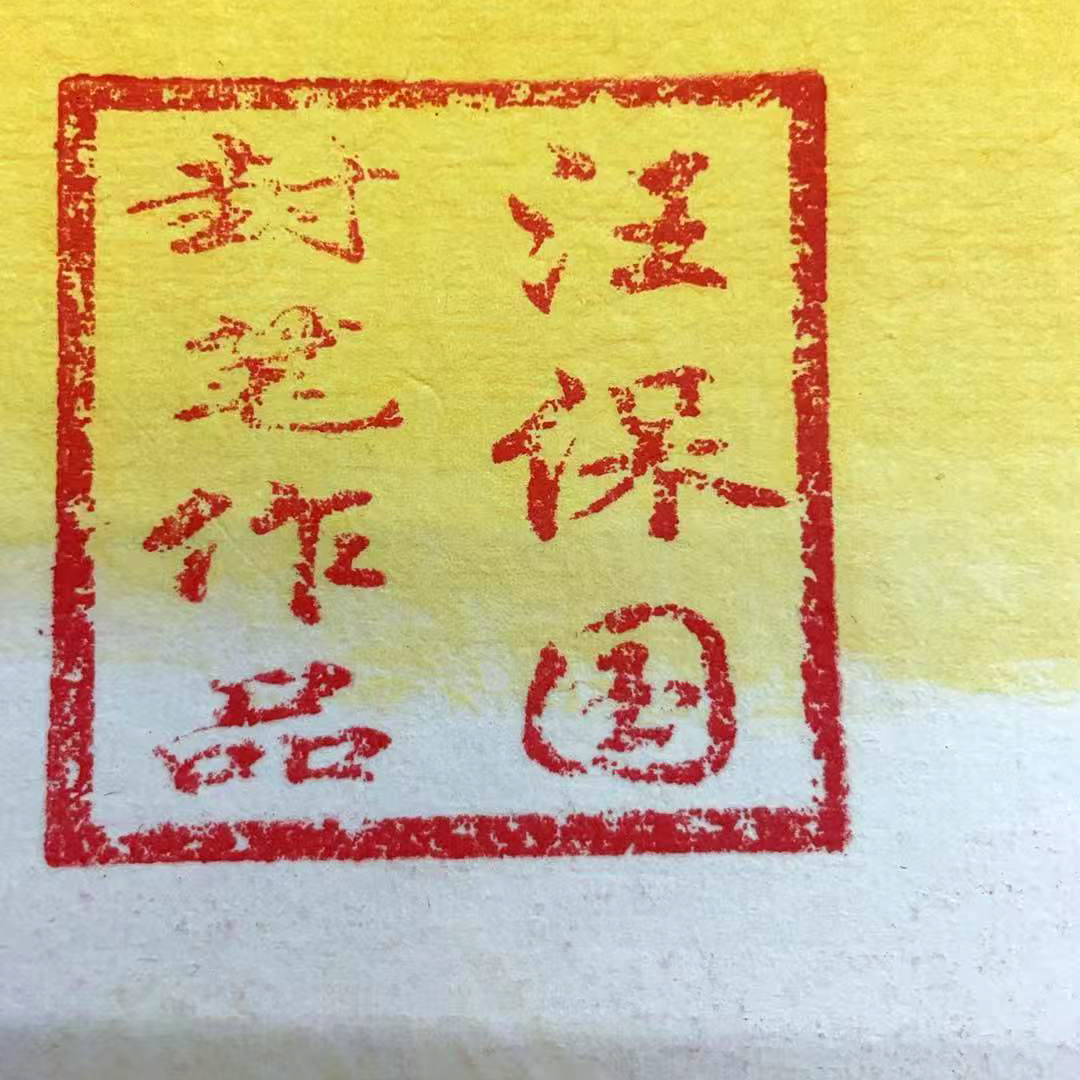 汪保国
封笔作品